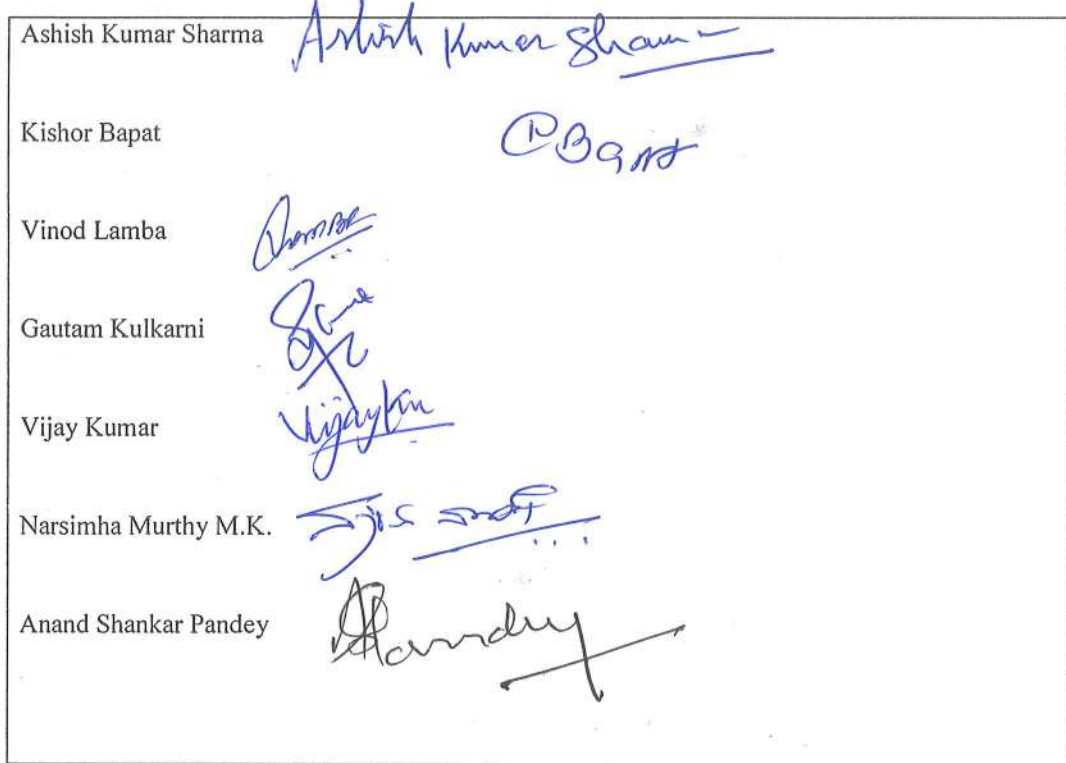 Ashish Kumar Sharma Ashish Kumar Sharma
Kishor Bapat
Vinod Lamba
Gautam Kulkarni
Vijay Kumar Vijay Km
Narsimha Murthy M.K.
Anand Shankar Pandey APandey